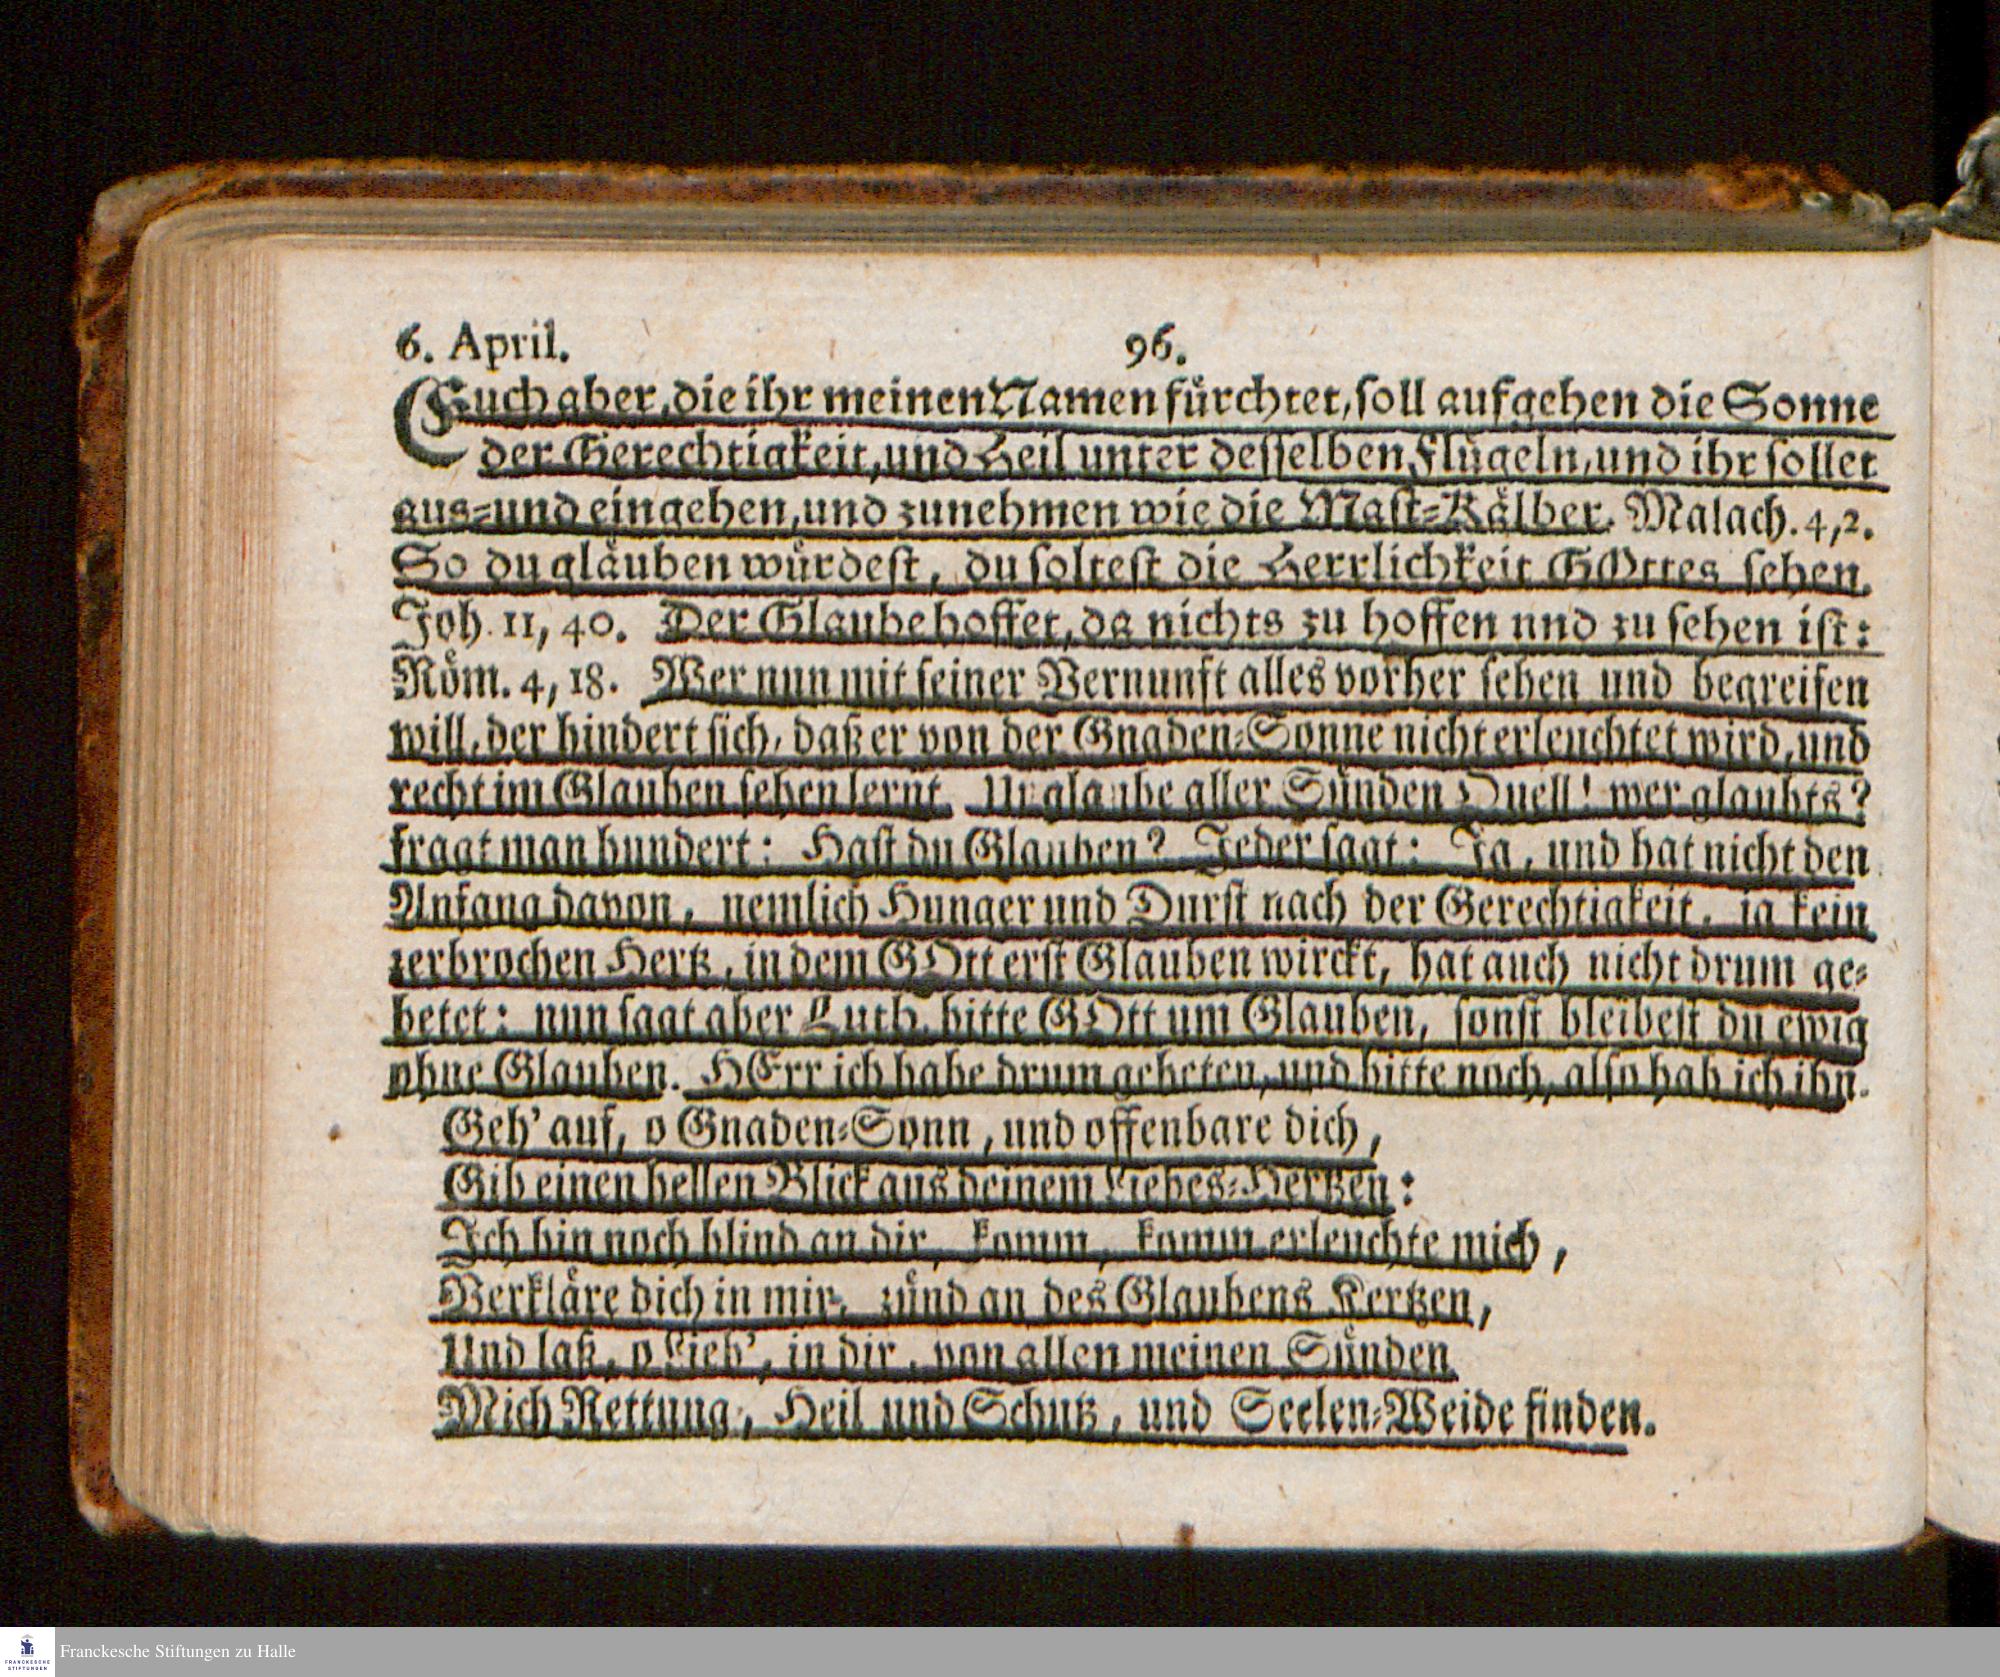 6. April. 96.
Euch aber, die ihr meinen Namen fürchtet, soll aufgehen die Sonne
der Gerechtigkeit, und Heil unter desselben Flügeln, und ihr sollet
aus-und eingehen, und zunehmen wie die Mast-Kälber. Malach. 4, 2.
So du gläuben würdest, du soltest die Herrlichkeit GOttes sehen.
Joh. 11, 40. Der Glaube hoffet, da nichts zu hoffen nnd zu sehen ist:
Röm. 4, 18. Wer nun mit seiner Vernunft alles vorher sehen und begreifen
will, der hindert sich, daß er von der Gnaden-Sonne nicht erleuchtet wird, und
recht im Glauben sehen lernt. Unglaube aller Sünden Quell! wer glaubts?
fragt man hundert: Hast du Glauben? Jeder sagt: Ja, und hat nicht den
Anfang davon, nemlich Hunger und Durst nach der Gerechtigkeit, ja kein
zerbrochen Hertz, in dem GOtt erst Glauben wirckt, hat auch nicht drum ge-
betet: nun sagt aber Luth. bitte GOtt um Glauben, sonst bleibest du ewig
ohne Glauben. HErr ich habe drum gebeten, und bitte noch, also hab ich ihn.
Geh' auf, o Gnaden-Sonn, und offenbare dich,
Gib einen hellen Blick aus deinem Liebes-Hertzen:
Ich bin noch blind an dir, komm, komm erleuchte mich,
Verkläre dich in mir, zünd an des Glaubens Kertzen,
Und laß, o Lieb', in dir, von allen meinen Sünden
Mich Rettung, Heil und Schutz, und Seelen-Weide finden.
Franckesche Stiftungen zu Halle
FRANCKESCHE
STIFTUNGEN